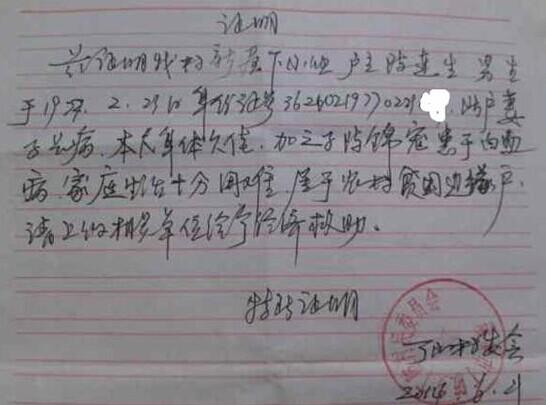 证明
兹证明我村 下 组 户主陈连生 男 生
于1977. 2. 29日 身份证号 362602197702291 , 此户妻
子长病, 本人身体欠佳, 加之子陈锦宽患于白血
病, 家庭生活十分困难, 属于农村贫困边缘户,
请上级相关单位给予经济救助。
特此证明
村委会
2014. 6. 21